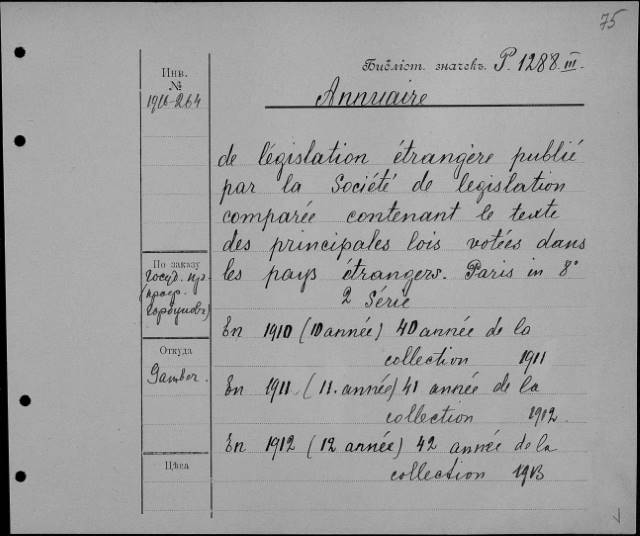 75
Библіот. значекъ. P. 1288.III.
Инв.
№
1916-264
Annuaire
de législation étrangère publié
par la Société de legislation
comparée contenant le texte
des principales lois votées dans
les pays étrangers. Paris in 8°
2 Série
По заказу
Госуд. пр.
(проф.
Горбуновъ)
En 1910 (10 année) 40 année de la
collection 1911
Откуда
En 1911 (11. année) 41 année de la
collection 1912.
En 1912 (12 année) 42 année de la
collection 1913
Цѣна